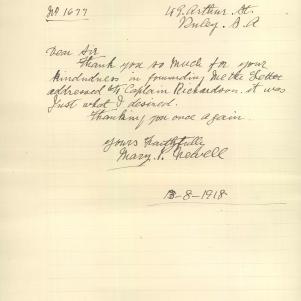 No 1677
49 Arthur St.
Unley. S. A
Dear Sir
Thank you so much for your
kindndness in forwarding me the letter
addressed to Captain Richardson. it was
Just what I desired.
Thanking you once again.
Yours Faithfully
Mary. I. Newell
13-8-1918